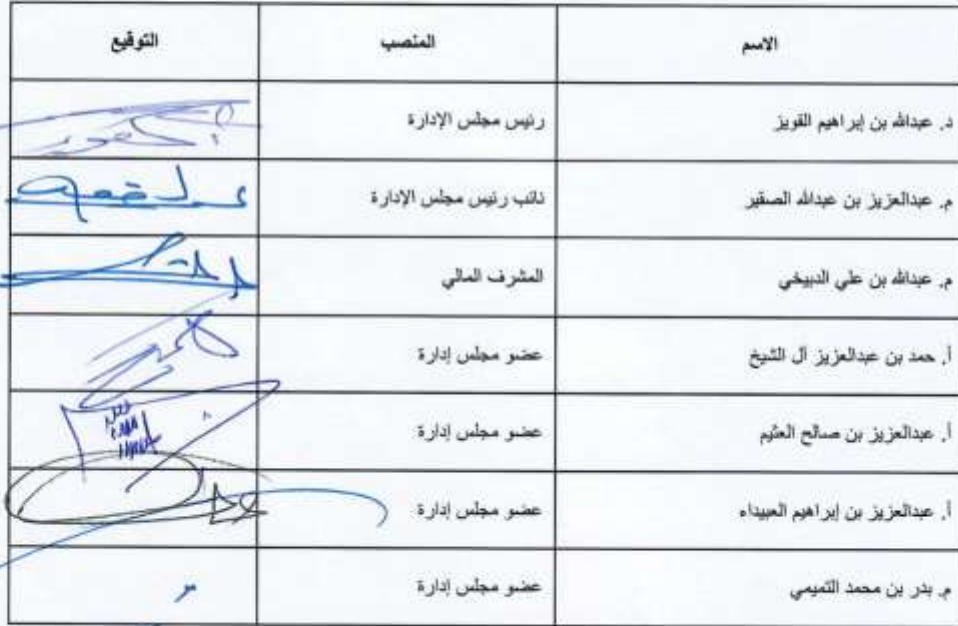 الاسم المنصب التوقيع
د. عبدالله بن إبراهيم القويز رئيس مجلس الإدارة
م. عبدالعزيز بن عبدالله الصقير نائب رئيس مجلس الإدارة
م. عبدالله بن علي الدبيخي المشرف المالي
أ. حمد بن عبدالعزيز آل الشيخ عضو مجلس إدارة
أ. عبدالعزيز بن صالح العثيم عضو مجلس إدارة
أ. عبدالعزيز بن إبراهيم العبيداه عضو مجلس إدارة
م. بدر بن محمد التميمي عضو مجلس إدارة